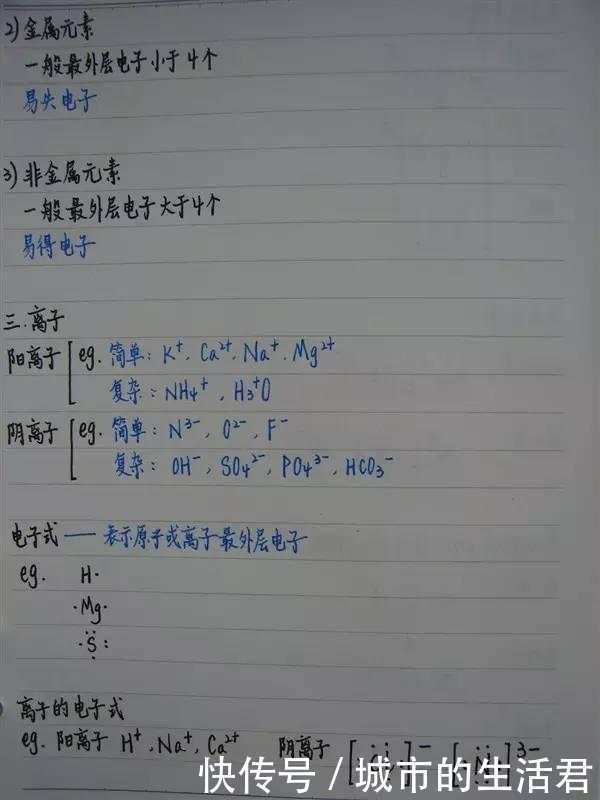 2) 金属元素
一般最外层电子小于4个
易失电子
3) 非金属元素
一般最外层电子大于4个
易得电子
三.离子
阳离子 eg. 简单: K⁺, Ca²⁺, Na⁺, Mg²⁺
复杂: NH₄⁺, H₃⁺O
阴离子 eg. 简单: N³⁻, O²⁻, F⁻
复杂: OH⁻, SO₄²⁻, PO₄³⁻, HCO₃⁻
电子式 — 表示原子或离子最外层电子
eg. H·
·Mg·
·S:
离子的电子式
eg. 阳离子 H⁺, Na⁺, Ca²⁺ 阴离子 [ ]⁻ [ ]³⁻
快传号/城市的生活君